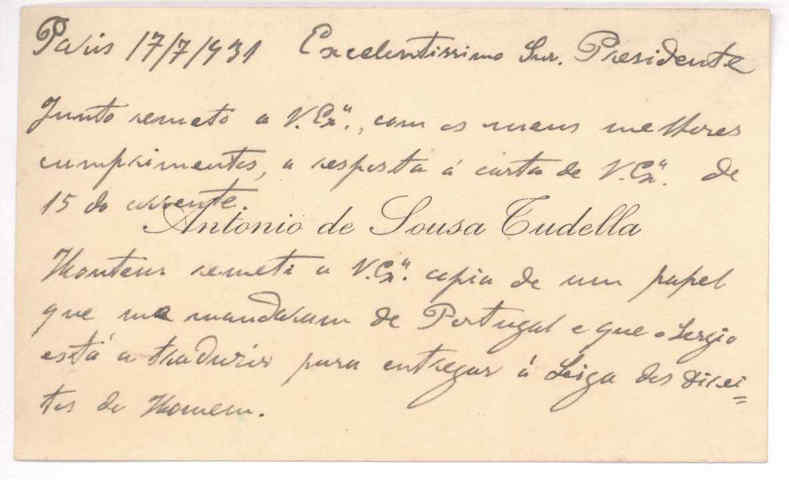 Paris 17/7/931 Excelentissimo Snr. Presidente
Junto remeto a V. Exª., com os meus melhores
cumprimentos, a resposta á carta de V. Exª. de
15 do corrente.
Antonio de Sousa Tudella
Hontem remeti a V. Exª. copia de um papel
que me mandaram de Portugal e que o Sergio
está a traduzir para entregar á Liga dos Direi=
tos do Homem.